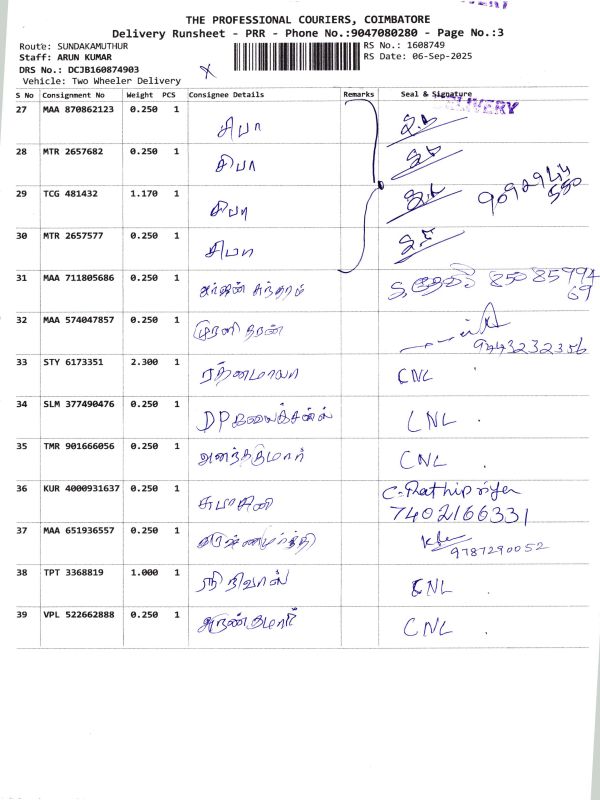 THE PROFESSIONAL COURIERS, COIMBATORE
Delivery Runsheet - PRR - Phone No.:9047080280 - Page No.:3
Route: SUNDAKAMUTHUR
RS No.: 1608749
Staff: ARUN KUMAR
RS Date: 06-Sep-2025
DRS No.: DCJB160874903
X
Vehicle: Two Wheeler Delivery
S No Consignment No Weight PCS Consignee Details Remarks Seal & Signature
DELIVERY
27 MAA 870862123 0.250 1 சிபா
28 MTR 2657682 0.250 1 சிபா
29 TCG 481432 1.170 1 சிபா 9092944
550
30 MTR 2657577 0.250 1 சிபா
31 MAA 711805686 0.250 1 85085994
69
32 MAA 574047857 0.250 1 முரளிதரன்
9443232356
33 STY 6173351 2.300 1 ரத்னமாலா CNL
34 SLM 377490476 0.250 1 DP CNL
35 TMR 901666056 0.250 1 அனந்தகுமார் CNL
36 KUR 4000931637 0.250 1 சுபாசினி C. Rathipriya
7402166331
37 MAA 651936557 0.250 1 கிருஷ்ணமூர்த்தி
9787290052
38 TPT 3368819 1.000 1 ஸ்ரீ நிவாஸ் CNL
39 VPL 522662888 0.250 1 அருண்குமார் CNL